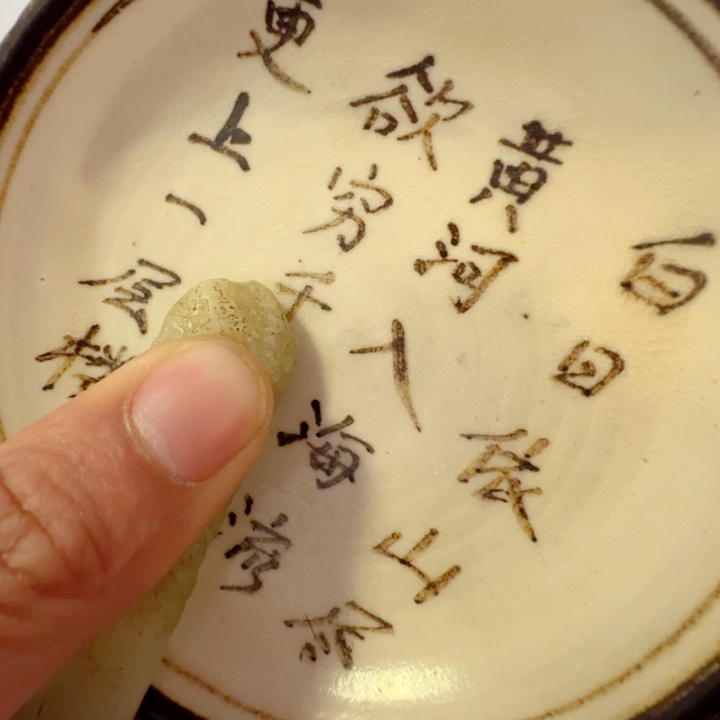 白日依山尽
黄河入海流
欲穷千
更上一层楼